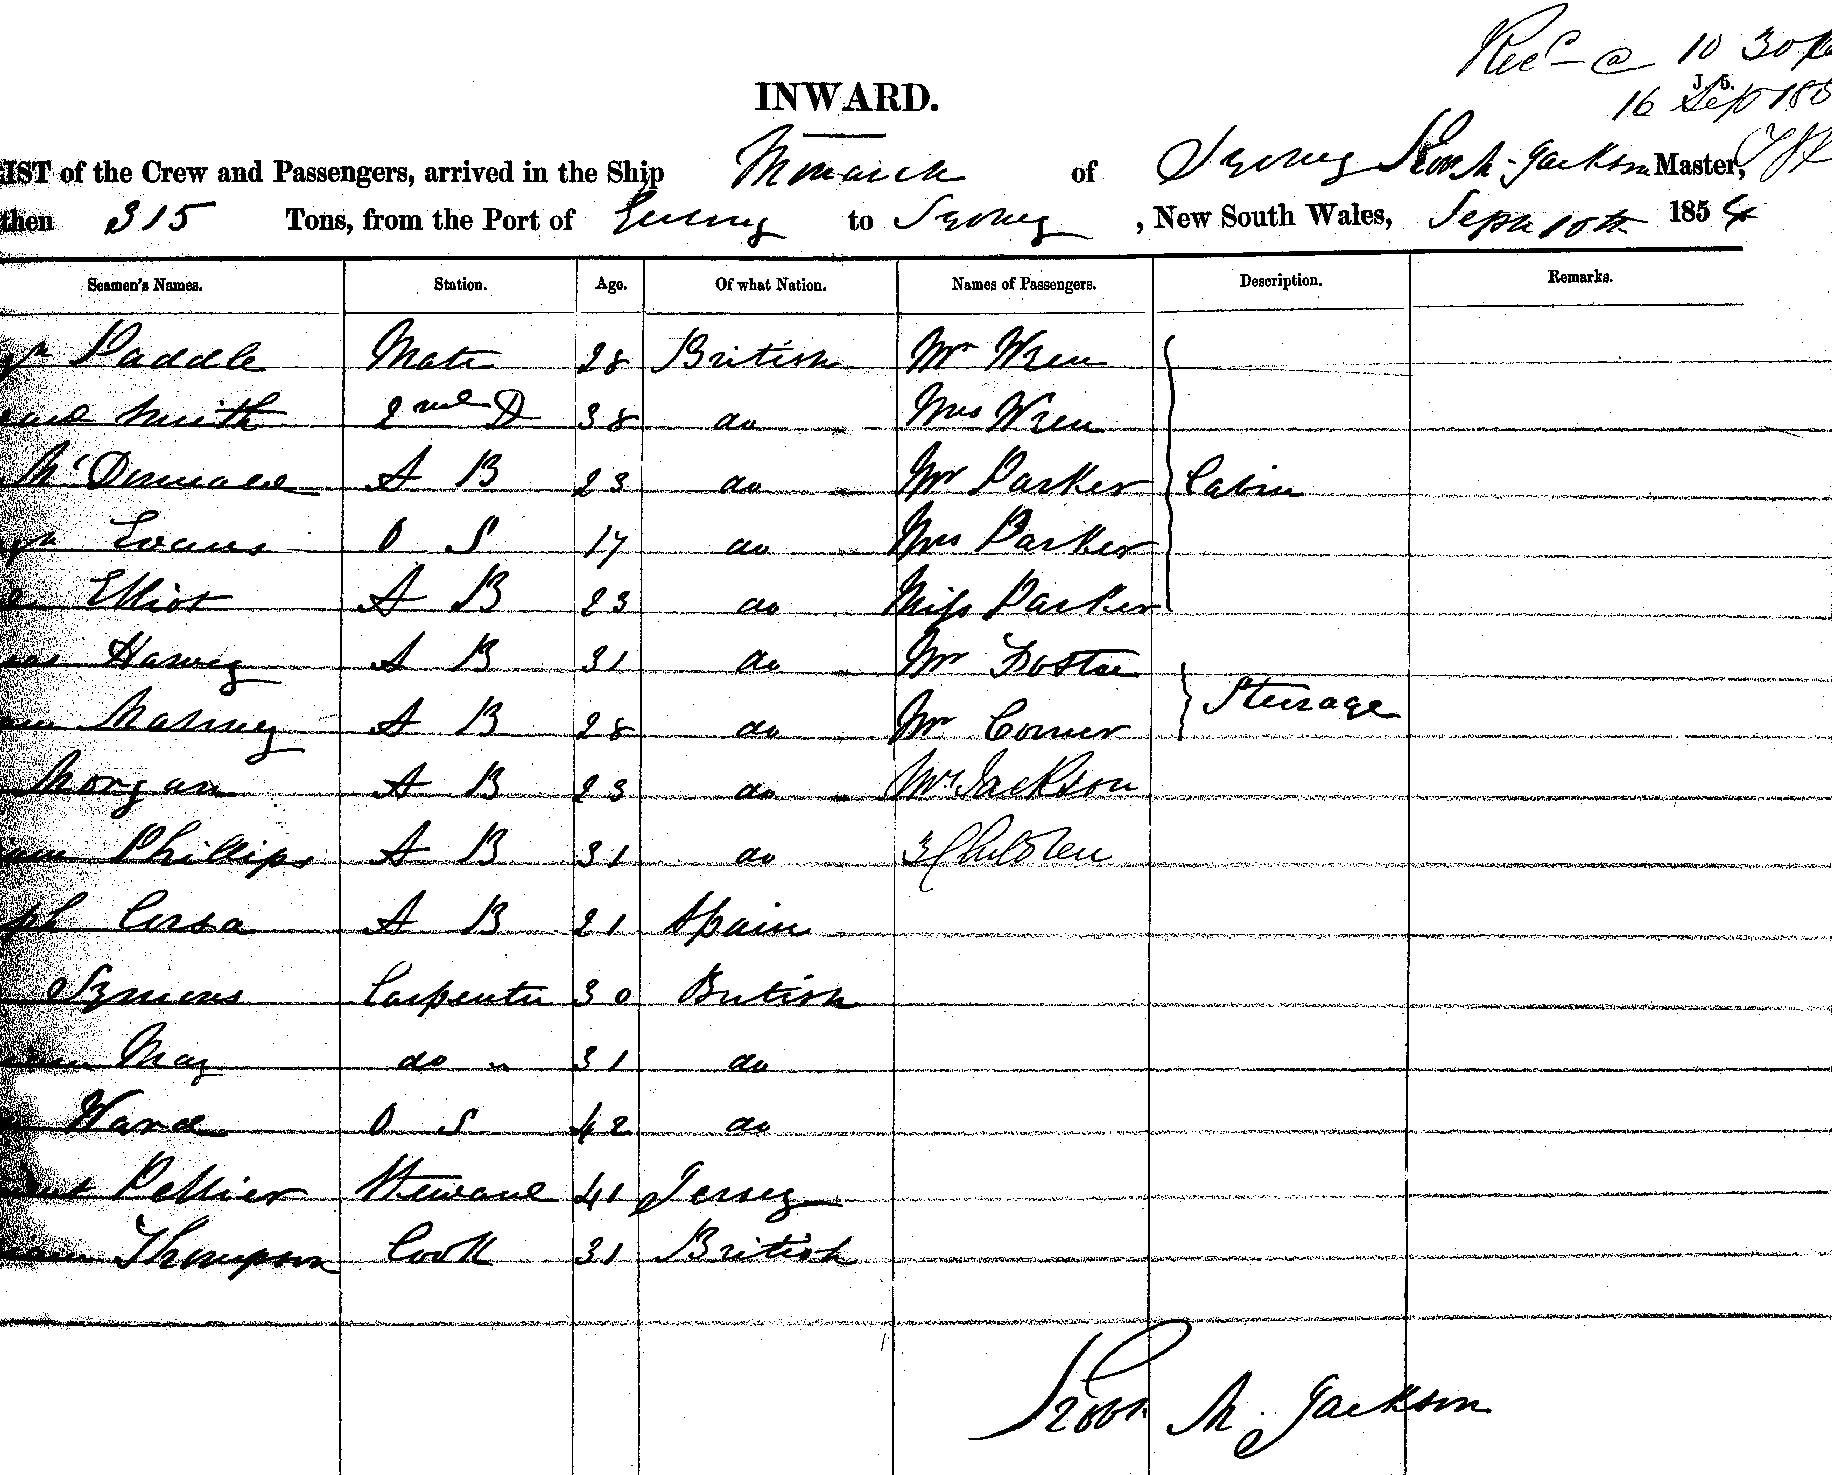 Recd @ 10 30
J. 5.
16 Sep 185
INWARD.
IST of the Crew and Passengers, arrived in the Ship Monarch of Sydney Robt M. Jackson Master,
then 315 Tons, from the Port of to Sydney , New South Wales, Sepr 10th 1854
Seamen's Names. Station. Age. Of what Nation. Names of Passengers. Description. Remarks.
Paddle Mate 28 British Mr Wren
Smith 2nd D 38 do Mrs Wren
McDonald A B 23 do Mr Parker Cabin
Evans O S 17 do Mrs Parker
Elliot A B 23 do Miss Parker
Harvey A B 31 do Mr Foster
Mahoney A B 28 do Mr Comer Steerage
Morgan A B 23 do Mrs Jackson
Phillips A B 31 do 3 Children
ph Corsa A B 21 Spain
Symons Carpenter 30 British
May do 31 do
Ward O S 42 do
Pellier Steward 41 Jersey
Thompson Cook 31 British
Robt M. Jackson